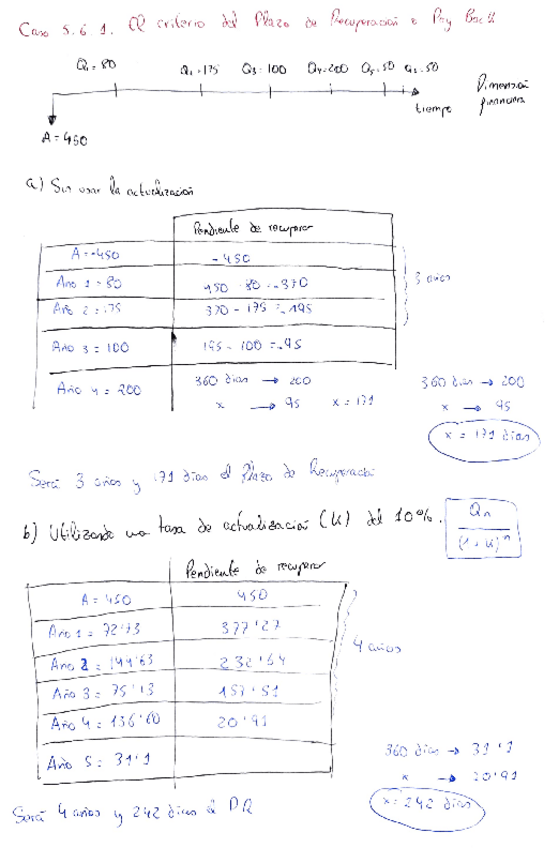 Caso 5.6.1. El criterio del Plazo de Recuperación o Pay Back
Q₁=80 Q₂=175 Q₃=100 Q₄=200 Q₅=50 Q₆=50
tiempo
Dimensión financiera
A=450
a) Sin usar la actualización
Pendiente de recuperar
A=-450 -450
Año 1=80 450-80=-370
Año 2=175 370-175=-195
3 años
Año 3=100 195-100=-95
Año 4=200 360 dias → 200
x → 95 x=171
360 dias → 200
x → 95
x=171 dias
Será 3 años y 171 dias el Plazo de Recuperación
b) Utilizando una tasa de actualización (K) del 10%. Qn/(1+K)^n
Pendiente de recuperar
A=450 450
Año 1=72'73 377'27
Año 2=144'63 232'64
4 años
Año 3=75'13 157'51
Año 4=136'60 20'91
Año 5=31'1
360 dias → 31'1
x → 20'91
x=242 dias
Será 4 años y 242 dias el PR